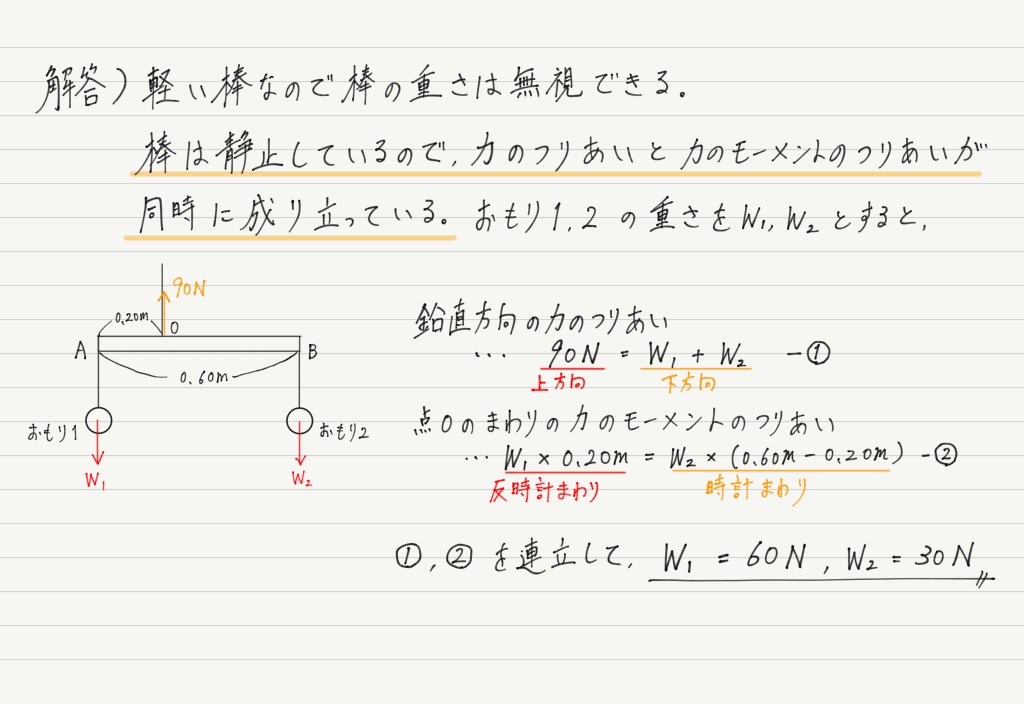 解答) 軽い棒なので棒の重さは無視できる。
棒は静止しているので、力のつりあいと力のモーメントのつりあいが
同時に成り立っている。おもり1,2の重さをW₁,W₂とすると、
90N
0.20m
O
A
B
0.60m
おもり1
おもり2
W₁
W₂
鉛直方向の力のつりあい
… 90N = W₁ + W₂ -①
上方向 下方向
点Oのまわりの力のモーメントのつりあい
… W₁ × 0.20m = W₂ × (0.60m - 0.20m) -②
反時計まわり 時計まわり
①,②を連立して、W₁ = 60N, W₂ = 30N